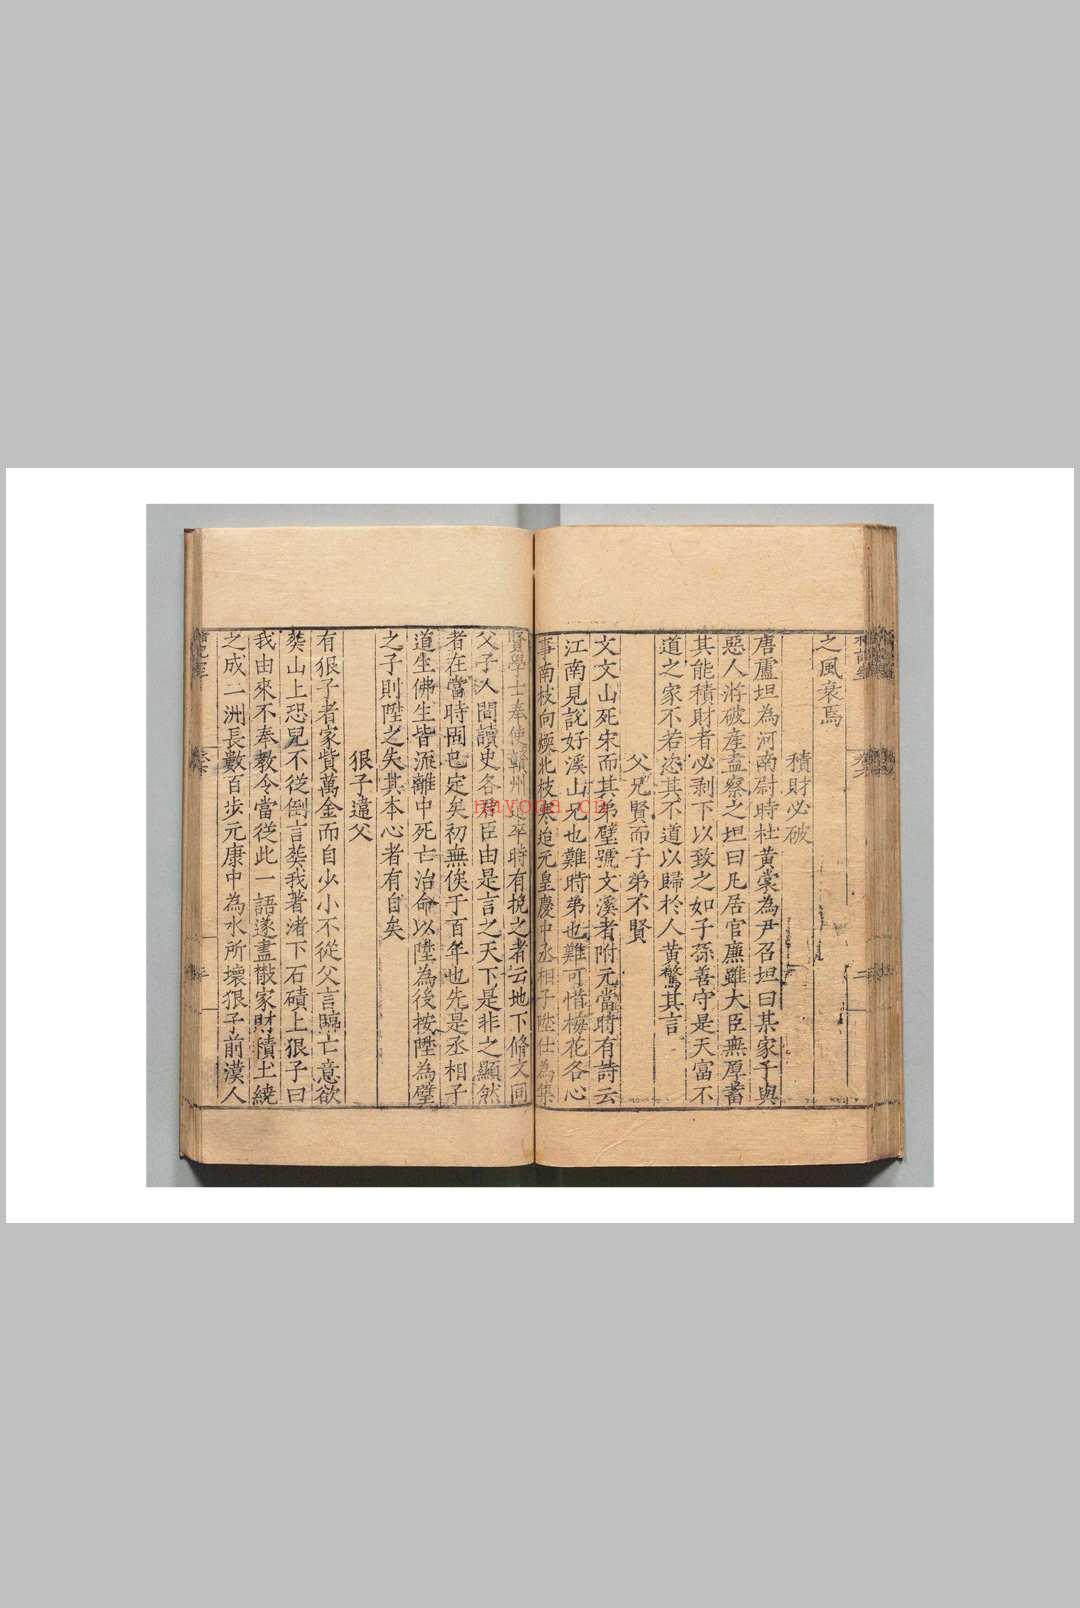 之風衰焉
積財必破
唐盧坦為河南尉時杜黃裳為尹召坦曰某家子與
惡人將破產盍察之坦曰凡居官廉雖大臣無厚蓄
其能積財者必剥下以致之如子孫善守是天富不
道之家不若恣其不道以歸於人黃驚其言
父兄賢而子弟不賢
文文山死宋而其弟璧號文溪者附元當時有詩云
江南見說好溪山兄也難時弟也難可惜梅花各心
事南枝向煖北枝寒迨元皇慶中丞相子陞仕為集
賢學士奉使贛州道卒時有挽之者云地下脩文同
父子人間讀史各君臣由是言之天下是非之顯然
者在當時固已定矣初無俟于百年也先是丞相子
道生佛生皆流離中死亡治命以陞為後按陞為璧
之子則陞之失其本心者有自矣
狠子違父
有狠子者家貲萬金而自少小不從父言臨亡意欲
葬山上恐兒不從倒言葬我著渚下石磧上狠子曰
我由來不奉教令當從此一語遂盡散家財積土繞
之成二洲長數百步元康中為水所壞狠子前漢人
nnyoga.cn